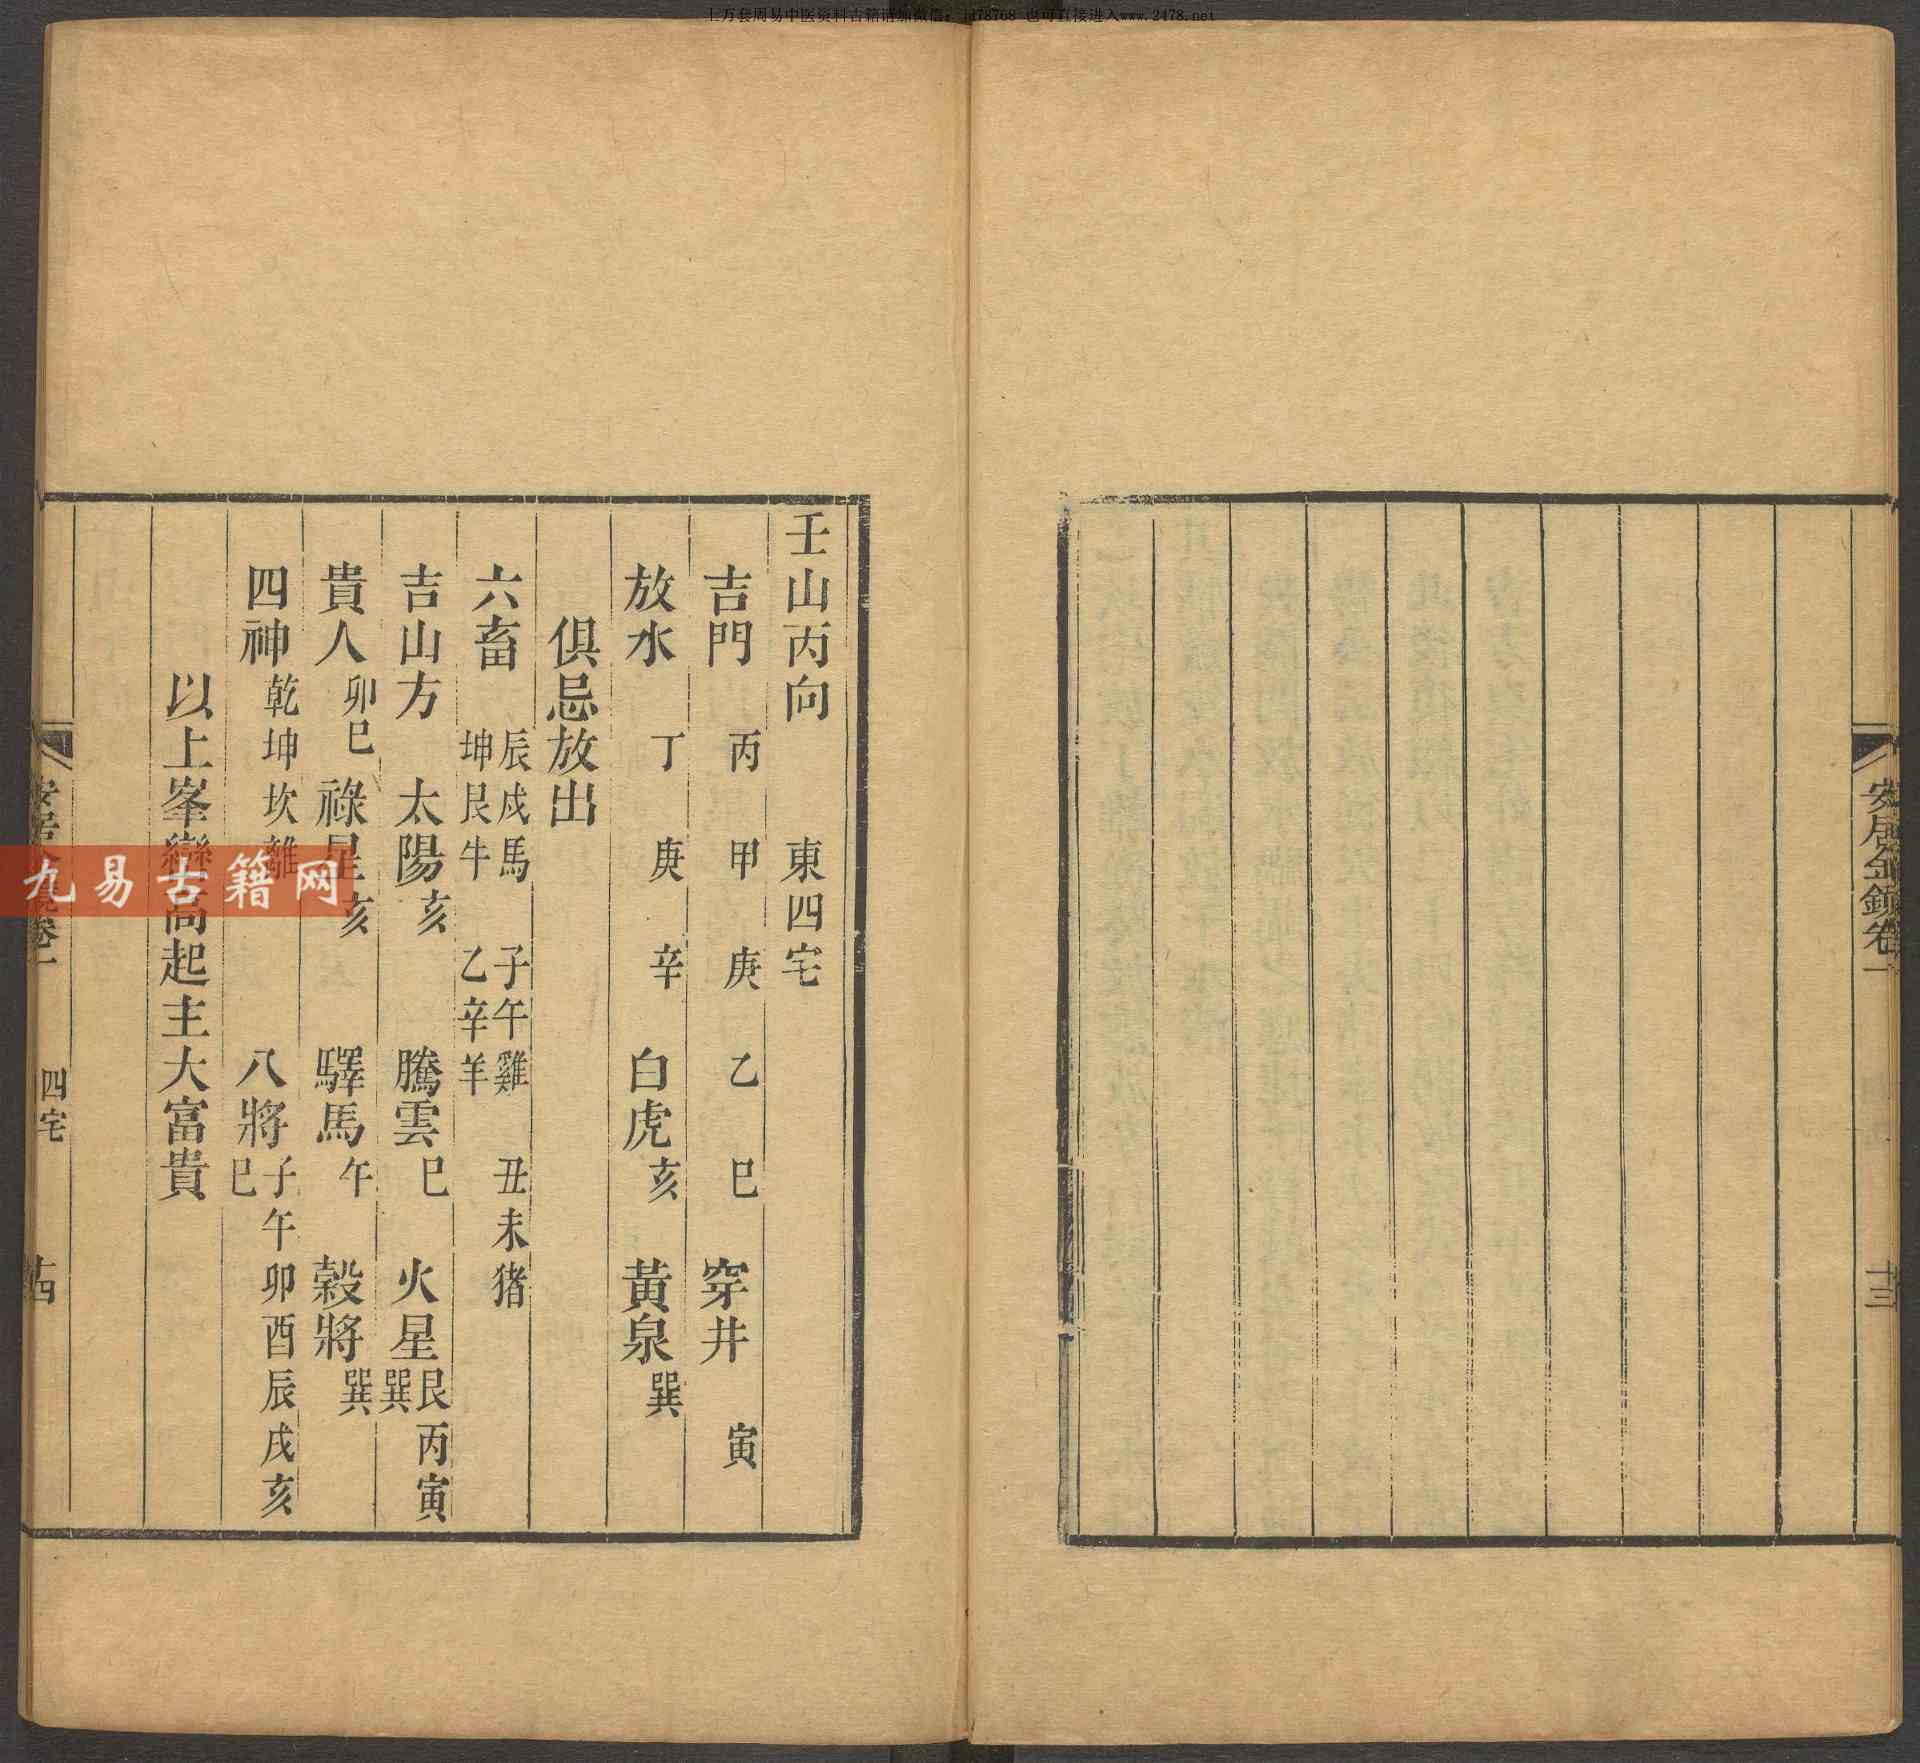 上万套周易中医资料古籍请加微信：jd78768 也可直接进入www.2478.net
安居金鏡卷一
十三
壬山丙向 東四宅
吉門 丙 甲 庚 乙 巳 穿井 寅
放水 丁 庚 辛 白虎亥 黄泉巽
俱忌放出
六畜 辰戌馬 坤艮牛 子午雞 乙辛羊 丑未猪
吉山方 太陽亥 騰雲巳 火星艮丙寅巽
貴人卯巳 祿星亥 驛馬午 穀將巽
四神乾坤坎離 八將子午卯酉辰戌亥巳
以上峯巒高起主大富貴
四宅 十四
九易古籍网